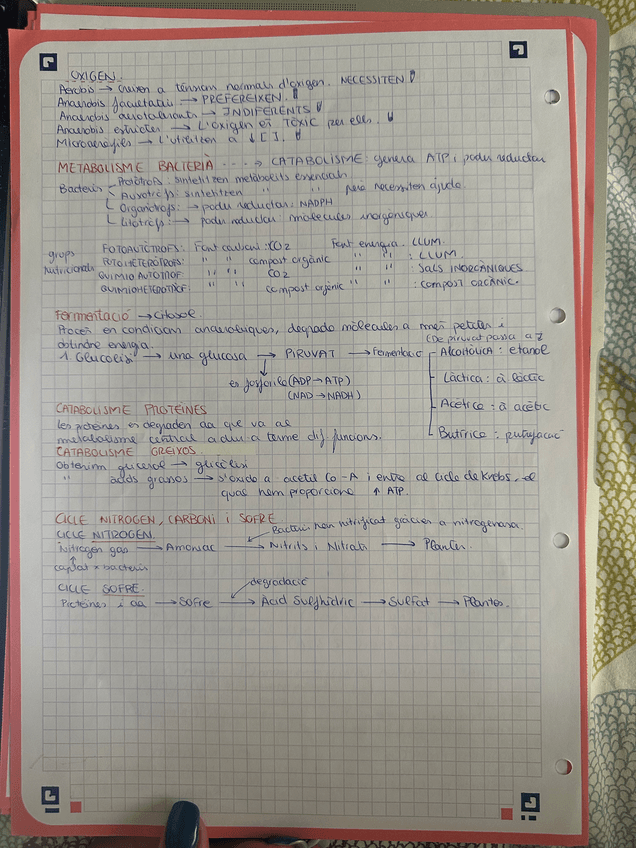 OXIGEN.
Aerobis → Creixen a tensions normals d'oxigen. NECESSITEN!
Anaerobis facultatiu → PREFEREIXEN!
Anaerobis aerotolerants → INDIFERENTS!
Anaerobis estrictes → L'oxigen és TÒXIC per ells!
Microaeròfils → L'utilitzen a ↓[].
METABOLISME BACTERIÀ ----→ CATABOLISME: genera ATP i poder reductor
Bacteris Protòtrofs: sintetitzen metabolits essencials
Auxòtrofs: sintetitzen " " però necessiten ajuda.
Organòtrofs: → poder reductor: NADPH
Litòtrofs: → poder reductor: molècules inorgàniques.
grups nutricionals
FOTOAUTÒTROFS: Font carboni: CO2 Font energia: LLUM.
FOTOHETERÒTROFS: " " compost orgànic " " : LLUM.
QUIMIOAUTÒTROF " " CO2 " " : SALS INORGÀNIQUES.
QUIMIOHETERÒTROF " " compost orgànic " " : COMPOST ORGÀNIC.
Fermentació → Citosol.
Procés en condicions anaeròbiques, degrada molècules a més petites i
obtindre energia. (De piruvat passa a
1 Glucòlisi → una glucosa → PIRUVAT → Fermentació Alcohòlica: etanol
es fosforila (ADP → ATP) Làctica: à làctic
(NAD → NADH)
Acètica: à acètic
CATABOLISME PROTEÏNES
Les proteïnes es degraden aa que va al Butírica: putrefacció
metabolisme central a dur a terme dif funcions.
CATABOLISME GREIXOS.
Obtenim glicerol → glicòlisi
" àcids grassos → s'oxida a acetil Co-A i entra al cicle de Krebs, el
qual hem proporciona ↑ ATP.
CICLE NITROGEN, CARBONI i SOFRE
CICLE NITROGEN. Bacteri nitrificat gràcies a nitrogenasa.
Nitrogen gas → Amoníac → Nitrits i Nitrats → Plantes.
captat x bacteris
CICLE SOFRE. degradació
Proteïnes i aa → Sofre → Àcid Sulfhídric → Sulfat → Plantes.